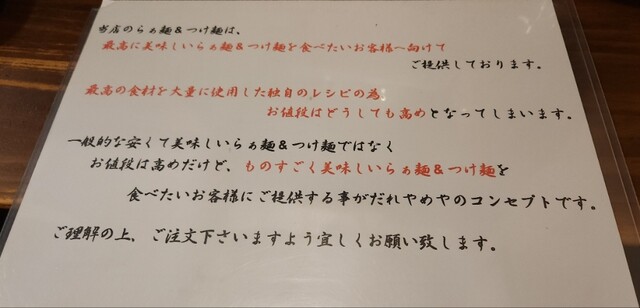 当店のらぁ麺＆つけ麺は、
最高に美味しいらぁ麺＆つけ麺を食べたいお客様へ向けて
ご提供しております。
最高の食材を大量に使用した独自のレシピの為
お値段はどうしても高めとなってしまいます。
一般的な安くて美味しいらぁ麺＆つけ麺ではなく
お値段は高めだけど、ものすごく美味しいらぁ麺＆つけ麺を
食べたいお客様にご提供する事がだれやめやのコンセプトです。
ご理解の上、ご注文下さいますよう宜しくお願い致します。